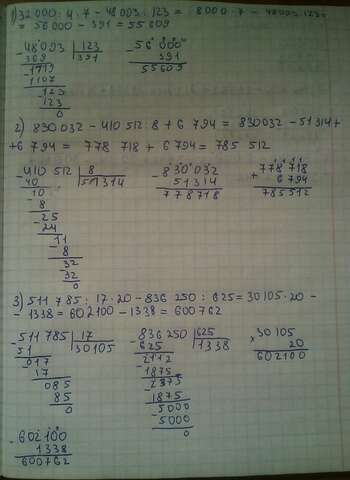 1) 32000 : 4 · 7 - 48093 : 123 = 8000 · 7 - 48093 : 123 =
= 56000 - 391 = 55609
-48093 | 123
369 | 391
-1119
1107
-123
123
0
-56000
391
55609
2) 830032 - 410 512 : 8 + 6 794 = 830032 - 51314 +
+ 6 794 = 778 718 + 6794 = 785 512
-410 512 | 8
40 | 51314
-10
8
-25
24
-11
8
-32
32
0
-830032
51314
778718
+778 718
6 794
785512
3) 511 785 : 17 · 20 - 836 250 : 625 = 30105 · 20 -
- 1338 = 602100 - 1338 = 600762
-511 785 | 17
51 | 30105
-017
17
085
85
0
-836 250 | 625
625 | 1338
-2112
1875
-2375
1875
-5000
5000
0
×30105
20
602100
-602100
1338
600762